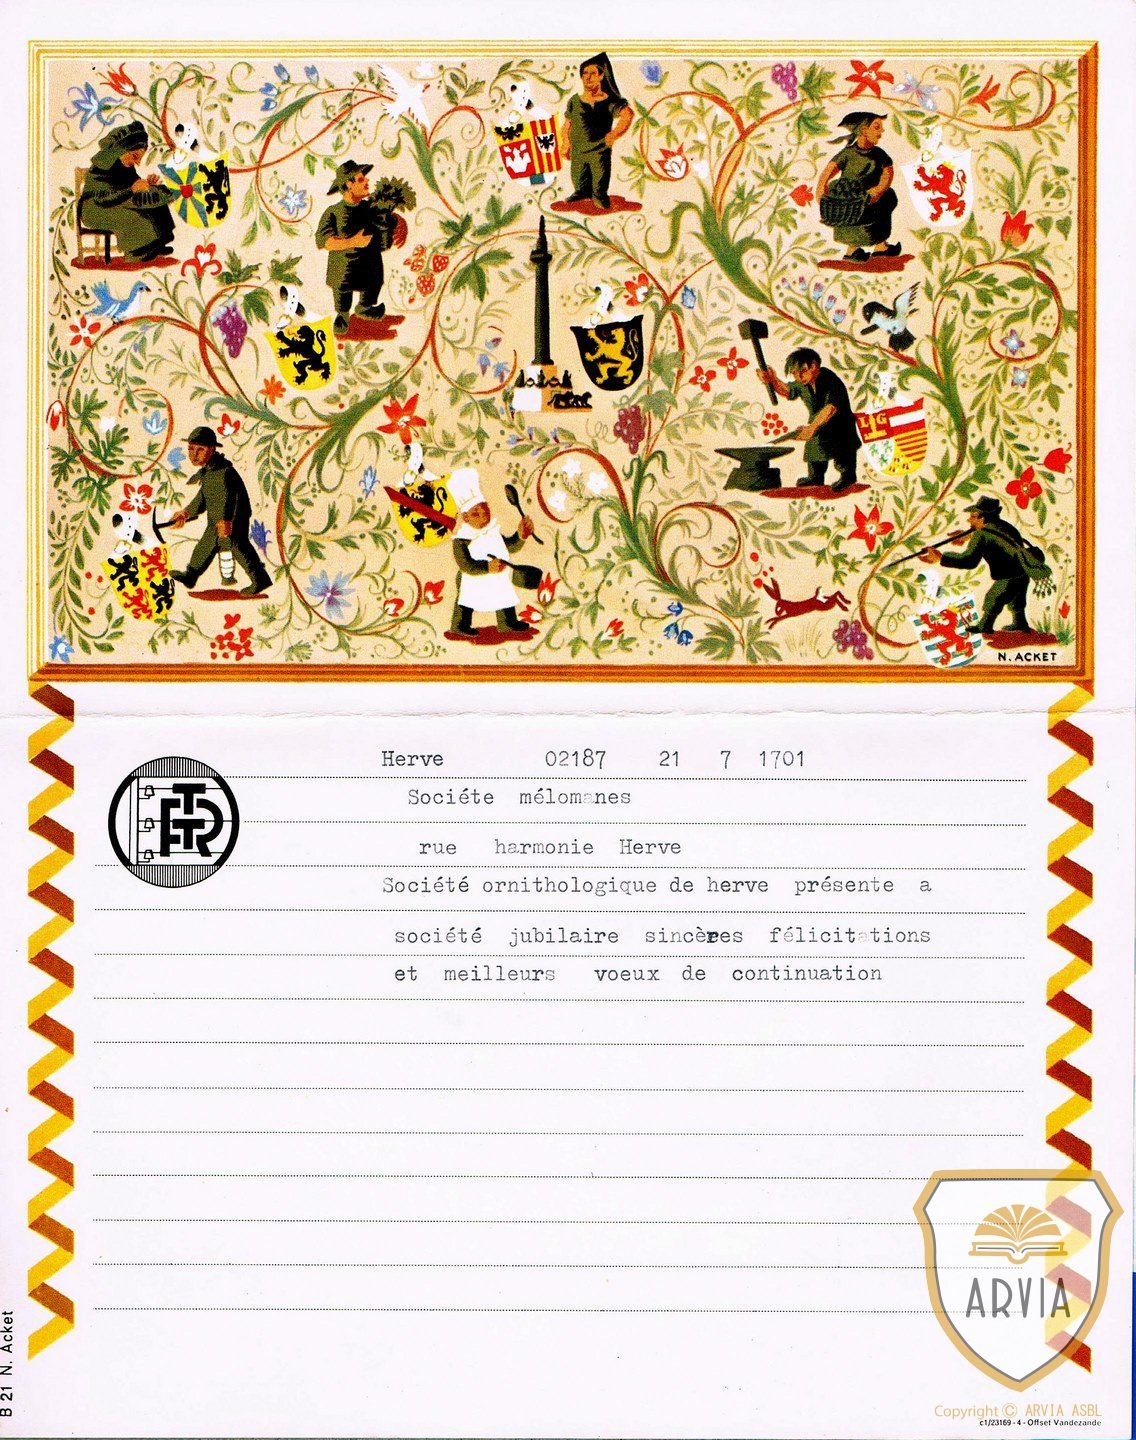 N. ACKET
RTT
Herve 02187 21 7 1701
Sociéte mélomanes
rue harmonie Herve
Société ornithologique de herve présente a
société jubilaire sincères félicitations
et meilleurs voeux de continuation
B 21 N. Acket
ARVIA
Copyright © ARVIA ASBL
c1/23169 - 4 - Offset Vandezande